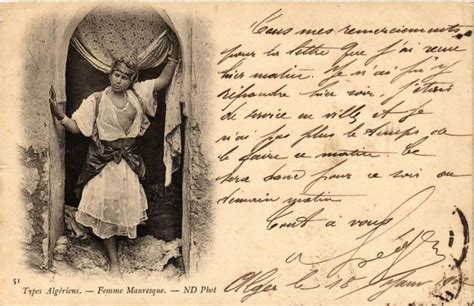 Tous mes remerciements
pour la lettre que j'ai reçue
hier matin. Je n'ai pu y
répondre hier soir, j'étais
de service en ville et je
n'ai pas plus le temps de
le faire ce matin. Ce
sera donc pour ce soir ou
demain matin
Tout à vous
Alger le 18
51
Types Algériens. — Femme Mauresque. — ND Phot